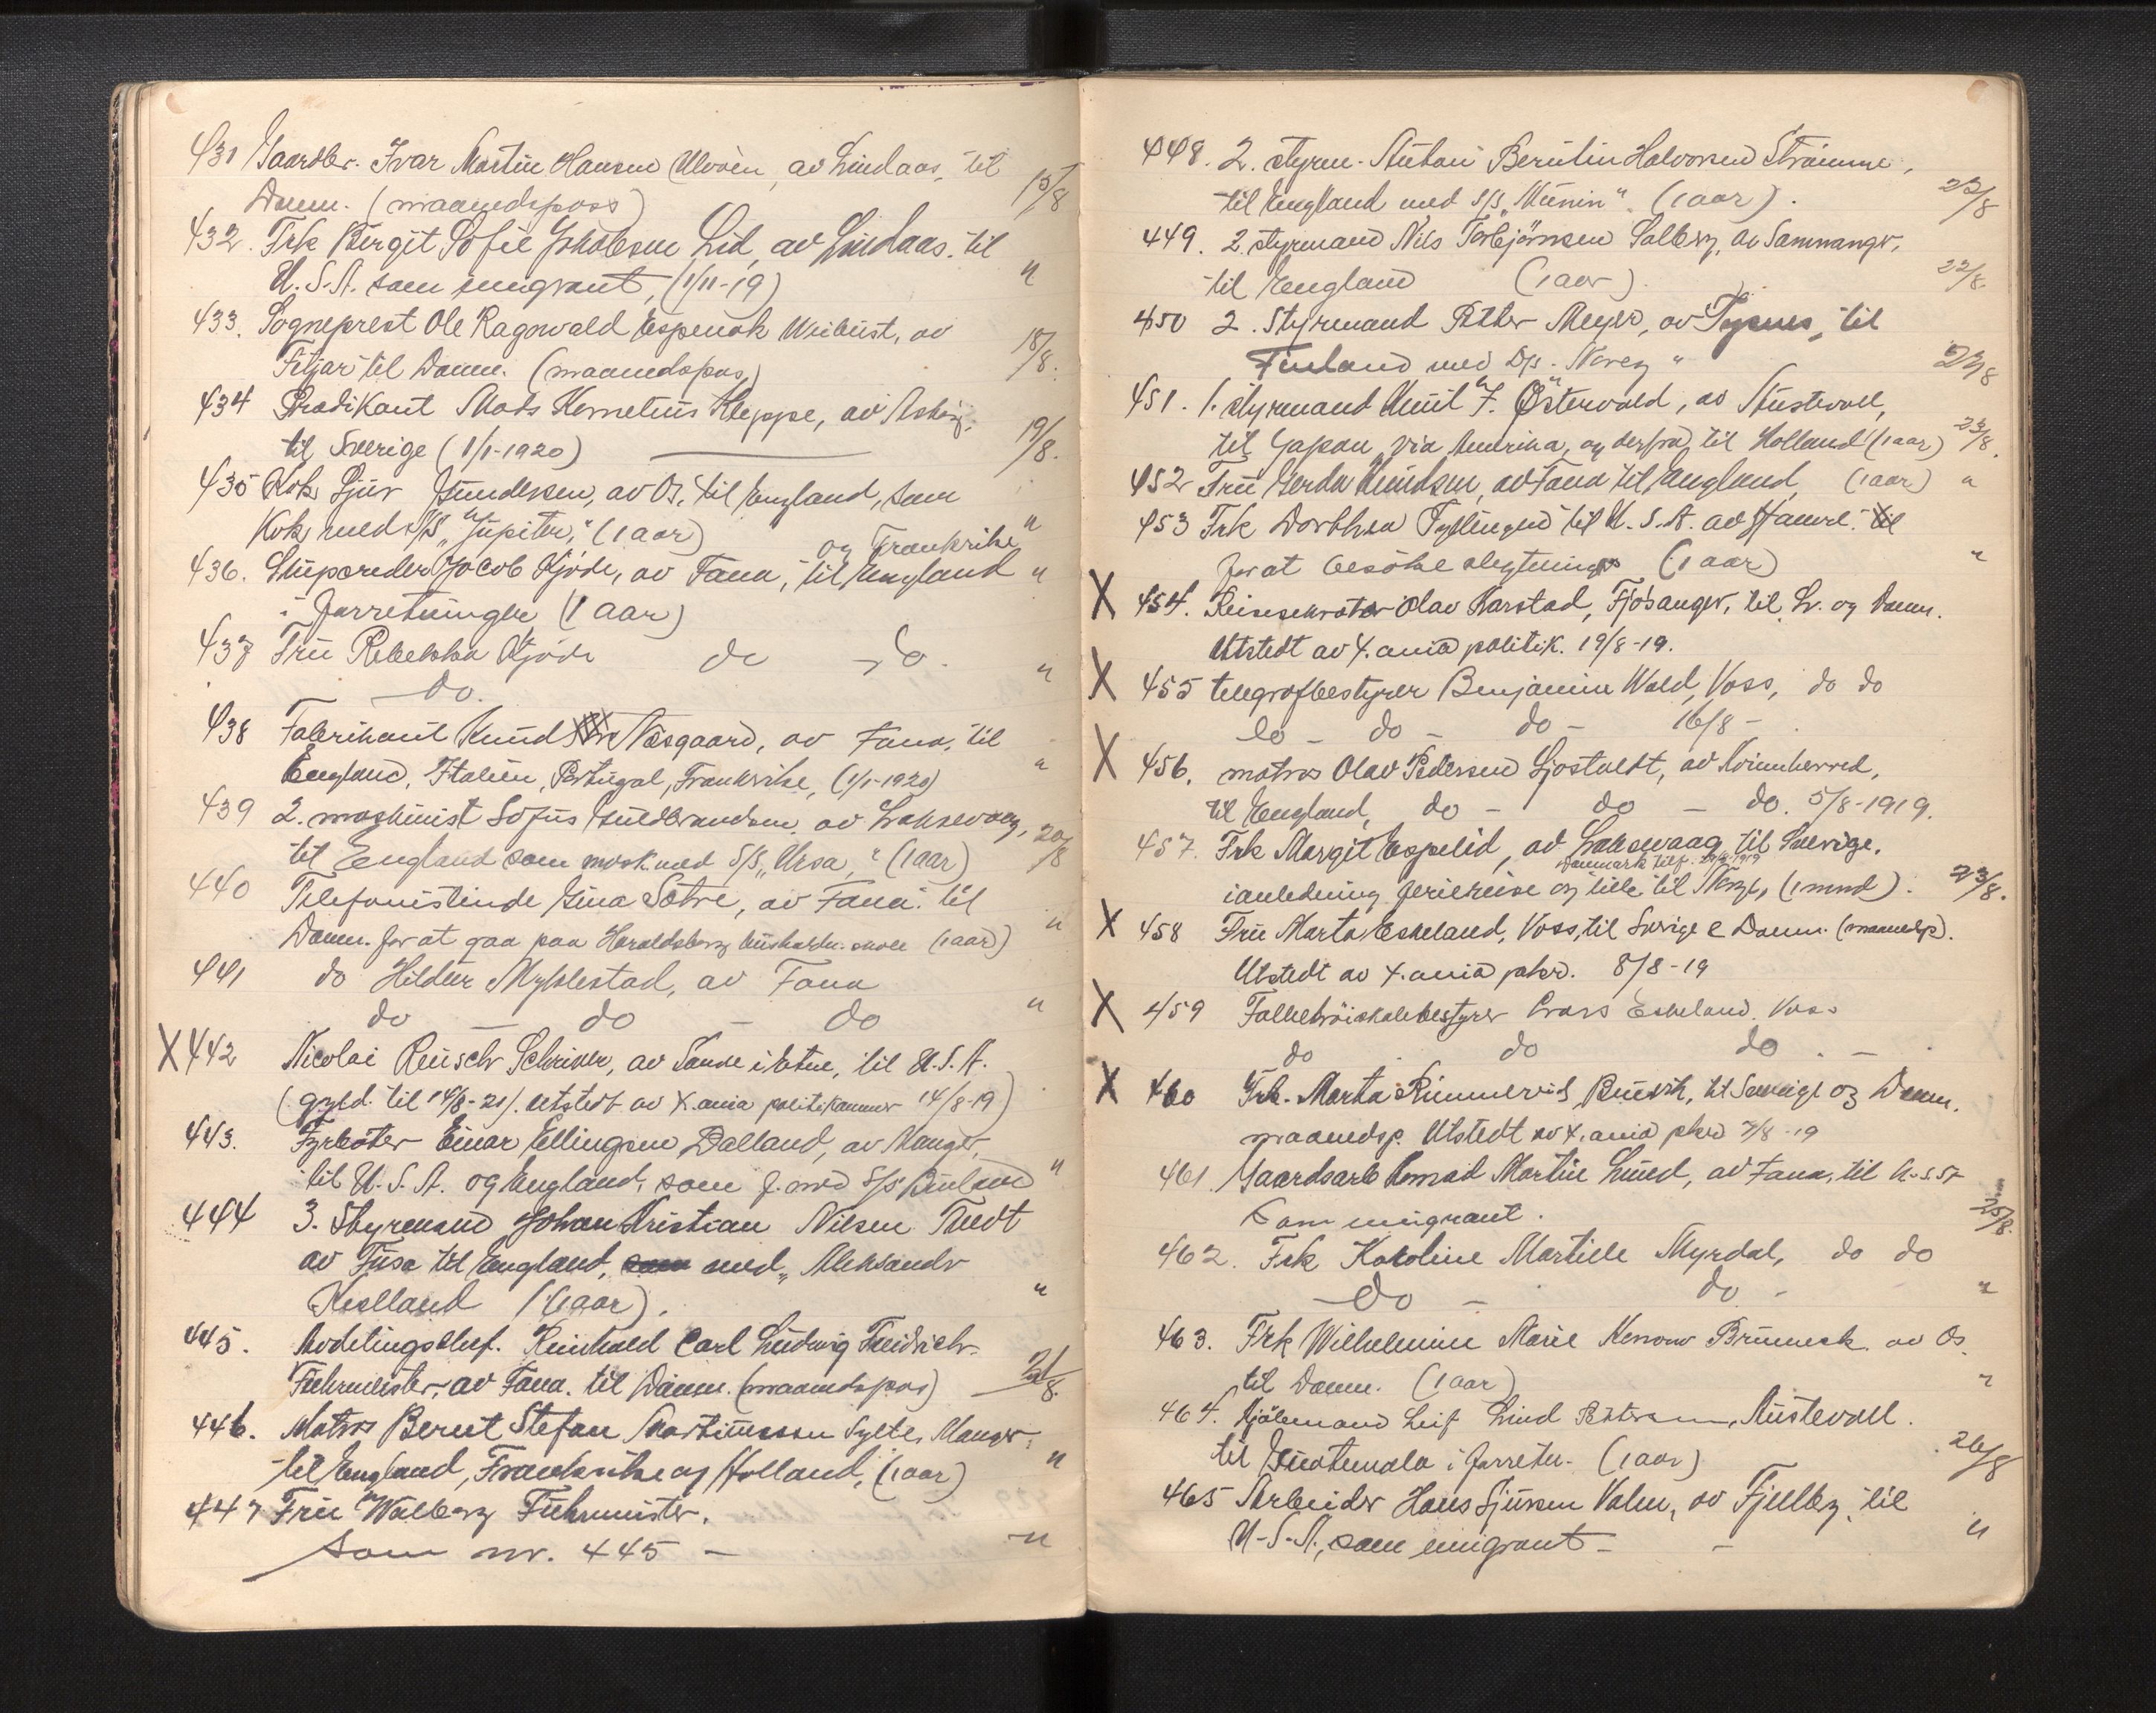 431 Gaardbr. Ivar Martin Hansen Ulvöen, av Lindaas, til
Danm. (maanedspass) 15/8
432. Frk Birgit Sofie Jakobsen Lid, av Lindaas. til
U.S.A. som emigrant, (1/11-19) "
433. Sogneprest Ole Ragnvald Espenak Weibust, av
Fitjar til Danm. (maanedspas) 18/8.
434 Prædikant Mads Kornelius Kleppe, av Askøy.
til Sverige (1/1-1920) 19/8.
435 Kok Sjur Gundersen, av Os, til England, som
Kok med S/S "Jupiter," (1 aar) "
og Frankrike
436. Skipsreder Jacob Kjöde, av Fana, til England "
i Forretninger (1 aar)
437 Frü Rebekka Kjöde do do. "
do.
438 Fabrikant Knud Næsgaard, av Fana, til
England, Italien, Portugal, Frankrike, (1/1-1920) "
439 2. maskinist Sofus Guldbrandsen. av Laksevaag,
til England som mask med S/S "Ursa," (1 aar) 20/8
440 Telefonistinde Gina Sotre, av Fana. til
Danm. for at gaa paa Haraldsborg husholdn. skole (1 aar) "
441 do Hildur Myklestad, av Fana
do - do - do "
X 442 Nicolai Reusch Schriver, av Sande i Etne, til U.S.A.
(gyld. til 14/8-21). utstedt av X.ania politikammer 14/8-19)
443. Fyrbøter Einar Ellingsen Dalland, av Manger,
til U.S.A. og England, som f. med S/S "
444 3. Styrmand Johan Kristian Nilsen Tvedt
av Fusa til England, som med "Aleksander
Kielland" (1 aar). "
445. Avdelingschef. Reinhold Carl Ludwig Freidrich
Fuhrmeister, av Fana. til Danm. (maanedspas) 21/8.
446. Matros Berent Stefan Martinussen Sylte, Manger,
til England, Frankrike og Holland, (1 aar) "
447 Frü Walborg Fuhrmeister.
Som nr. 445 - "
448. 2. styrm. Berntin Halvorsen Strömme,
til England med S/S "Munin". (1 aar). 22/8
449. 2. styrmand Nils Torbjörnsen Solberg, av Samnanger,
til England (1 aar) 22/8.
450 2. Styrmand Petter Meyer, av Tysnes, til
Finland med D/S "Noreg" 23/8
451. 1. styrmand Emil J. Östervold, av Austevoll,
til Japan, via Amerika, og derfra til Holland (1 aar) 23/8.
452 Frü Gerda Knudsen, av Fana til England, (1 aar) "
453 Frk Dorthea Tyllingen til U.S.A. av Hamre. til
for at besöke slegtninger (1 aar) "
X 454. Reisesekretær Olav Harstad, Fjösanger, til Sv. og Danm.
Utstedt av X.ania politik. 19/8-19.
X 455 telegrafbestyrer Benjamin Wold, Voss, do do
do - do - do - 16/8 -
X 456. matros Olav Pedersen, av Kvinnherred,
til England, do - do - do. 5/8-1919.
457. Frk Margit Espelid, av Laksevaag til Sverige.
Danmark tilf.
i anledning feriereise og tilb. til Norge, (1 mnd). 23/8.
X 458 Frü Marta Eskeland, Voss, til Sverige & Danm. (maanedsp).
Utstedt av X.ania pkr. 8/8-19
X 459 Folkehöiskolebestyrer Lars Eskeland. Voss
do do do. -
X 460 Frk. Marta Rimmereid, Bruvik, til Sverige og Danm.
maanedsp. Utstedt av X.ania pkr 7/8-19
461 Gaardsarb Konrad Martin Lund, av Fana, til U.S.A
Som emigrant. 25/8.
462. Frk Karoline Martine Myrdal, do do
- do - do - "
463. Frk Wilhelmine Marie Konow Brunnich. av Os.
til Danm. (1 aar) "
464. Kjöbmand Leif Lind Petersen, Austevoll.
til Guatemala i forretn. (1 aar) 26/8
465 Arbeider Hans Sjursen Valen, av Fjelberg, til
U.S.A., som emigrant - - "